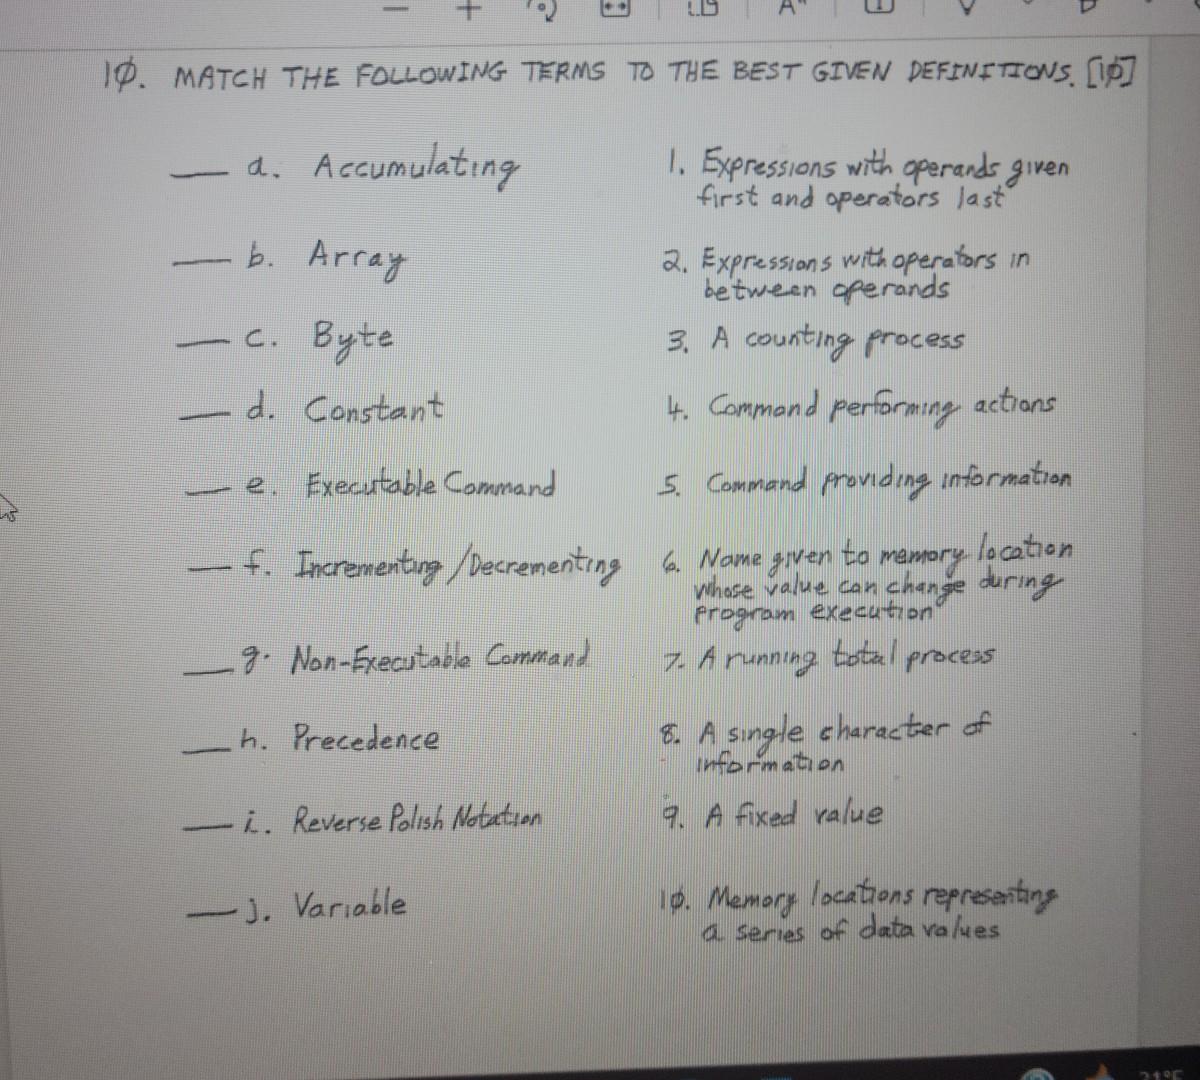 10. MATCH THE FOLLOWING TERMS TO THE BEST GIVEN DEFINITIONS. [10]
a. Accumulating
1. Expressions with operands given
first and operators last
b. Array
2. Expressions with operators in
between operands
c. Byte
3. A counting process
d. Constant
4. Command performing actions
e. Executable Command
5. Command providing information
f. Incrementing/Decrementing
6. Name given to memory location
whose value can change during
program execution
g. Non-Executable Command
7. A running total process
h. Precedence
8. A single character of
information
i. Reverse Polish Notation
9. A fixed value
j. Variable
10. Memory locations representing
a series of data values